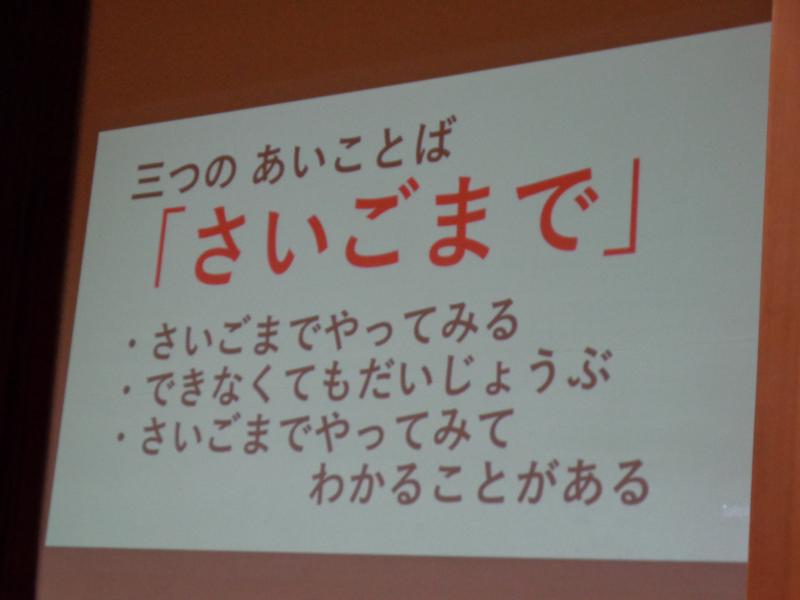 三つの あいことば
「さいごまで」
・さいごまでやってみる
・できなくてもだいじょうぶ
・さいごまでやってみて
わかることがある